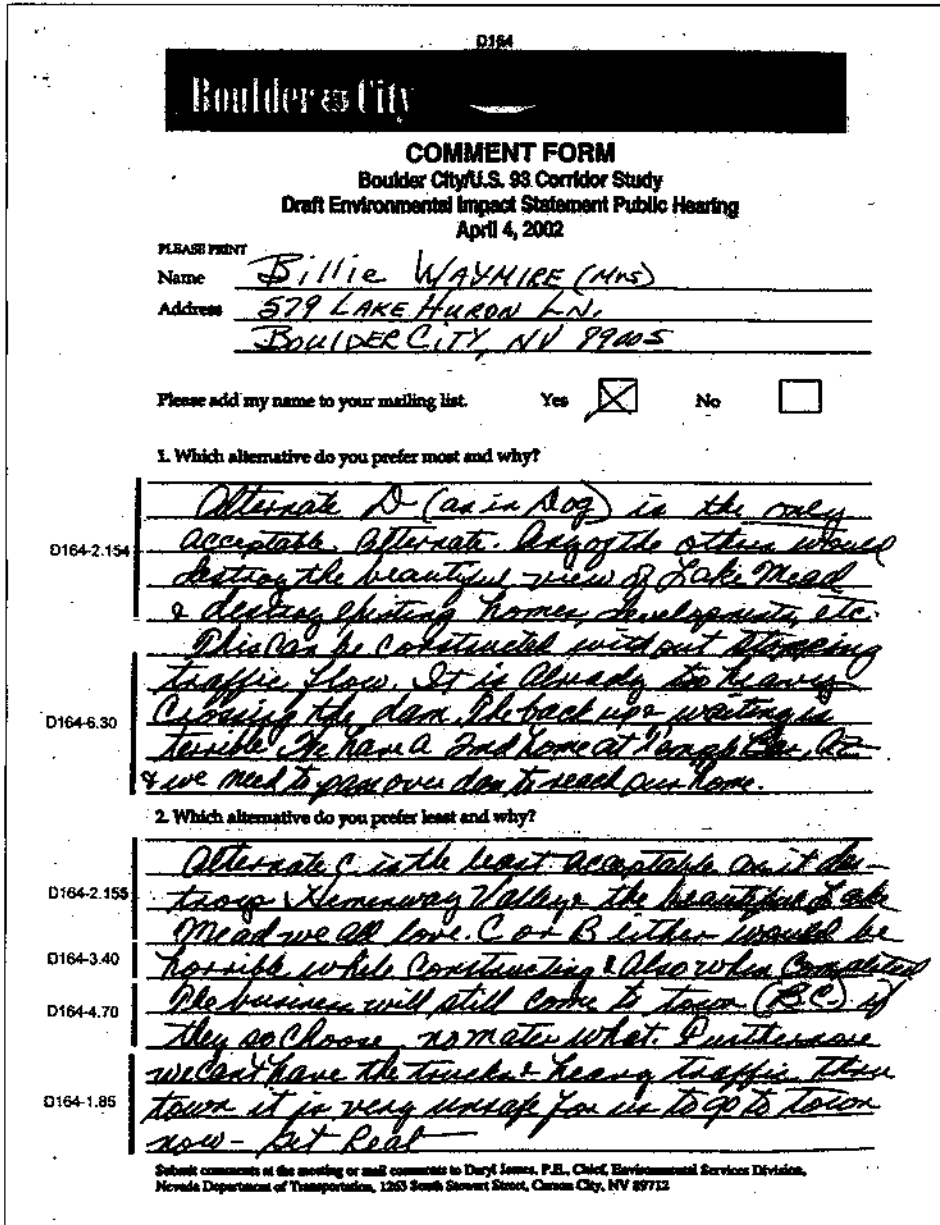 D164
Boulder City
COMMENT FORM
Boulder City/U.S. 93 Corridor Study
Draft Environmental Impact Statement Public Hearing
April 4, 2002
PLEASE PRINT
Name Billie WAYMIRE (Mrs)
Address 579 LAKE HURON LN.
BOULDER CITY, NV 89005
Please add my name to your mailing list. Yes No
1. Which alternative do you prefer most and why?
Alternate D (as in Dog) is the only
D164-2.154 acceptable. Alternate. Any of the others would
destroy the beautiful view of Lake Mead
& destroy existing homes, developments, etc.
This can be constructed without stopping
traffic flow. It is already too heavy
D164-6.30 Crossing the dam. The back up & waiting is
terrible. We have a 2nd home at Temple Bar, AZ
& we need to pass over dam to reach our home.
2. Which alternative do you prefer least and why?
Alternate C is the least acceptable as it des-
D164-2.155 troys Hemenway Valley & the beautiful Lake
Mead we all love. C or B either would be
D164-3.40 horrible while constructing & also when completed
D164-4.70 The business will still come to town (B.C.) if
they so choose, no mater what. Furthermore
we can't have the trucks & heavy traffic thru
D164-1.85 town it is very unsafe for us to go to town
now - Get Real
Submit comments at the meeting or mail comments to Daryl James, P.E., Chief, Environmental Services Division,
Nevada Department of Transportation, 1263 South Stewart Street, Carson City, NV 89712